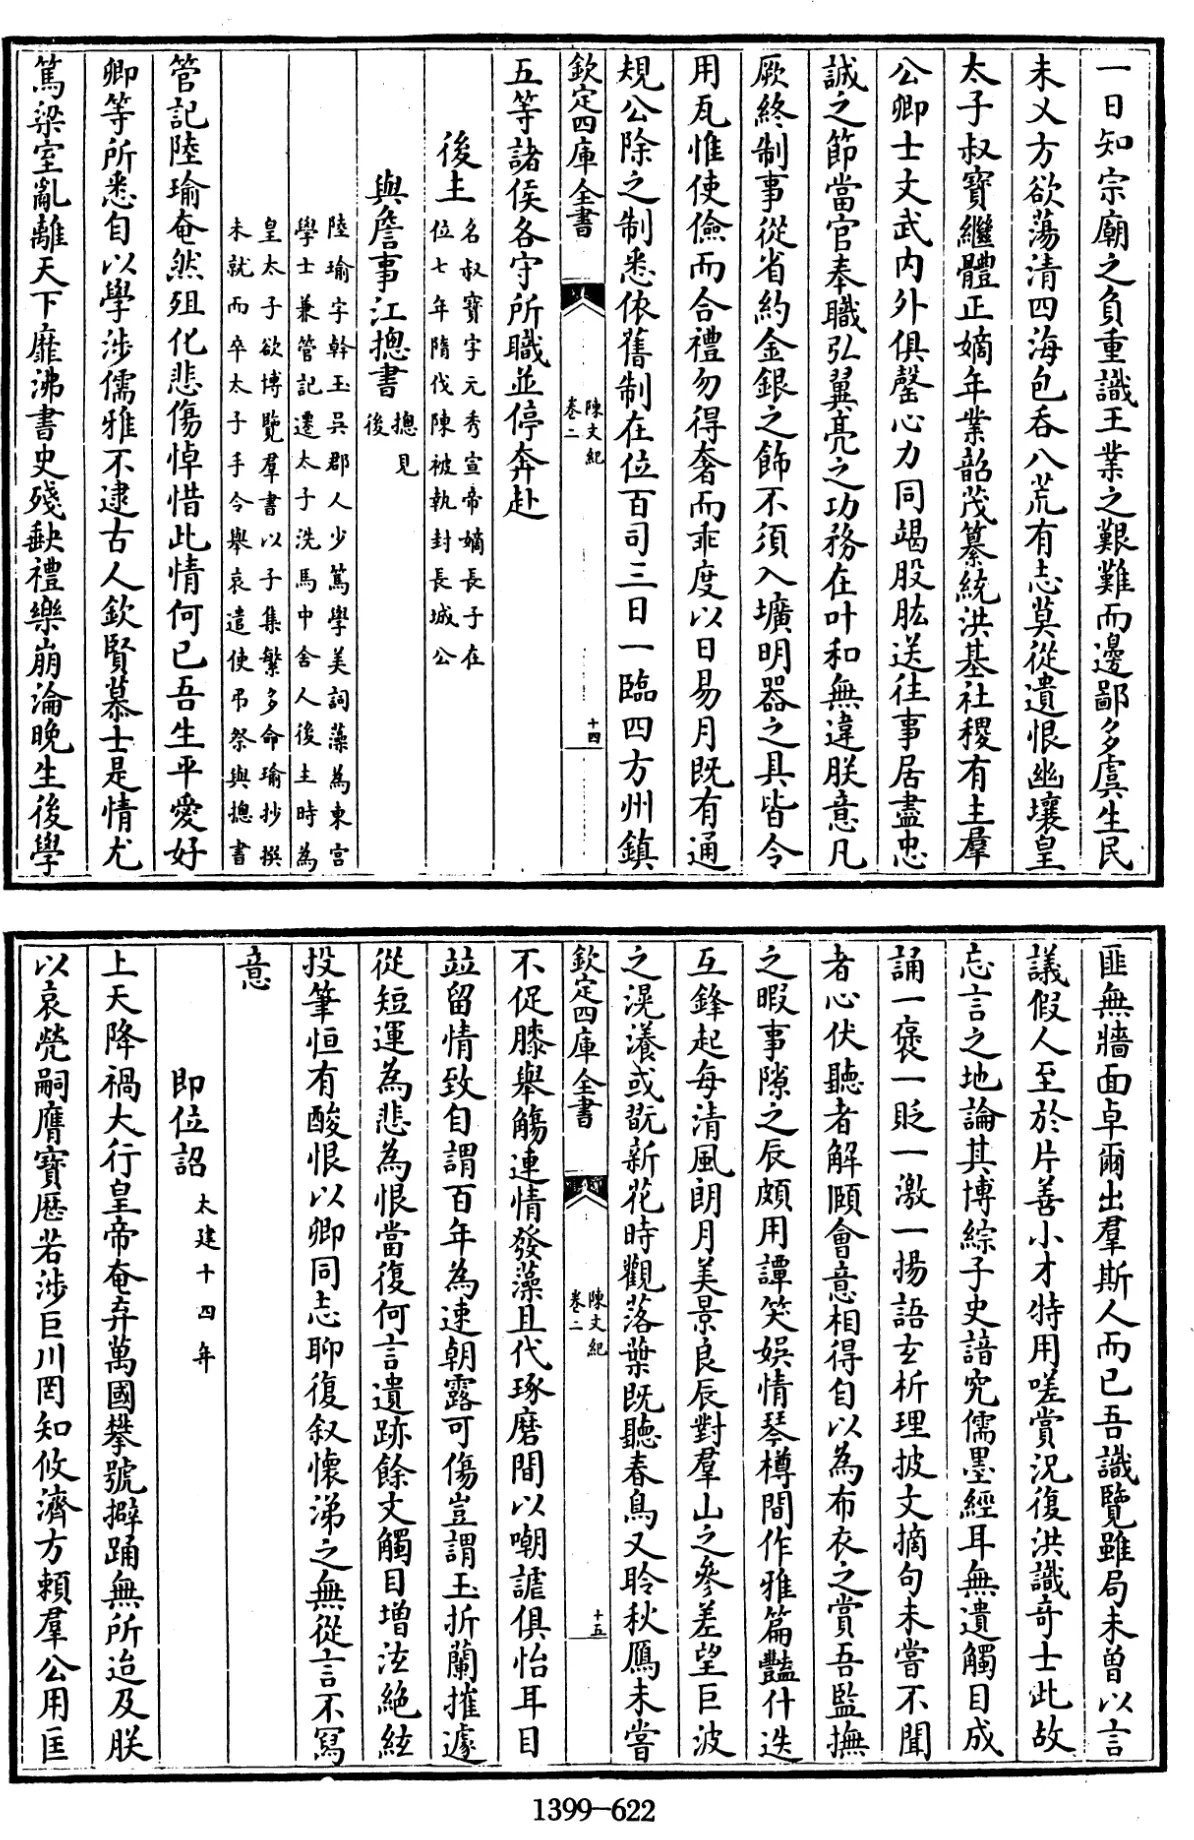 一日知宗廟之負重識王業之艱難而邊鄙多虞生民
未乂方欲蕩清四海包吞八荒有志莫從遺恨幽壤皇
太子叔寶繼體正嫡年業韶茂纂統洪基社稷有主羣
公卿士文武内外俱罄心力同竭股肱送往事居盡忠
誠之節當官奉職弘翼亮之功務在叶和無違朕意凡
厥終制事從省約金銀之飾不須入壙明器之具皆令
用瓦惟使儉而合禮勿得奢而乖度以日易月既有通
規公除之制悉依舊制在位百司三日一臨四方州鎮
欽定四庫全書
陳文紀
卷二
十四
五等諸侯各守所職並停奔赴
後主
名叔寶字元秀宣帝嫡長子在
位七年隋伐陳被執封長城公
與詹事江摠書
摠見
後
陸瑜字幹玉吳郡人少篤學美詞藻為東宮
學士兼管記遷太子洗馬中舍人後主時為
皇太子欲博覽羣書以子集繁多命瑜抄撰
未就而卒太子手令舉哀遣使弔祭與摠書
管記陸瑜奄然殂化悲傷悼惜此情何已吾生平愛好
卿等所悉自以學涉儒雅不逮古人欽賢慕士是情尤
篤梁室亂離天下靡沸書史殘缺禮樂崩淪晚生後學
匪無牆面卓爾出羣斯人而已吾識覽雖局未曾以言
議假人至於片善小才特用嗟賞況復洪識奇士此故
忘言之地論其博綜子史諳究儒墨經耳無遺觸目成
誦一褒一貶一激一揚語玄析理披文摘句未嘗不聞
者心伏聽者解頤會意相得自以為布衣之賞吾監撫
之暇事隙之辰頗用譚笑娛情琴樽間作雅篇豔什迭
互鋒起每清風朗月美景良辰對羣山之參差望巨波
之滉瀁或翫新花時觀落葉既聽春鳥又聆秋鴈未嘗
欽定四庫全書
陳文紀
卷二
十五
不促膝舉觴連情發藻且代琢磨間以嘲謔俱怡耳目
竝留情致自謂百年為速朝露可傷豈謂玉折蘭摧遽
從短運為悲為恨當復何言遺跡餘文觸目增泫絕絃
投筆恒有酸恨以卿同志聊復叙懷涕之無從言不寫
意
即位詔
太建十四年
上天降禍大行皇帝奄弃萬國攀號擗踊無所迨及朕
以哀煢嗣膺寶歷若涉巨川罔知攸濟方賴羣公用匡
1399-622